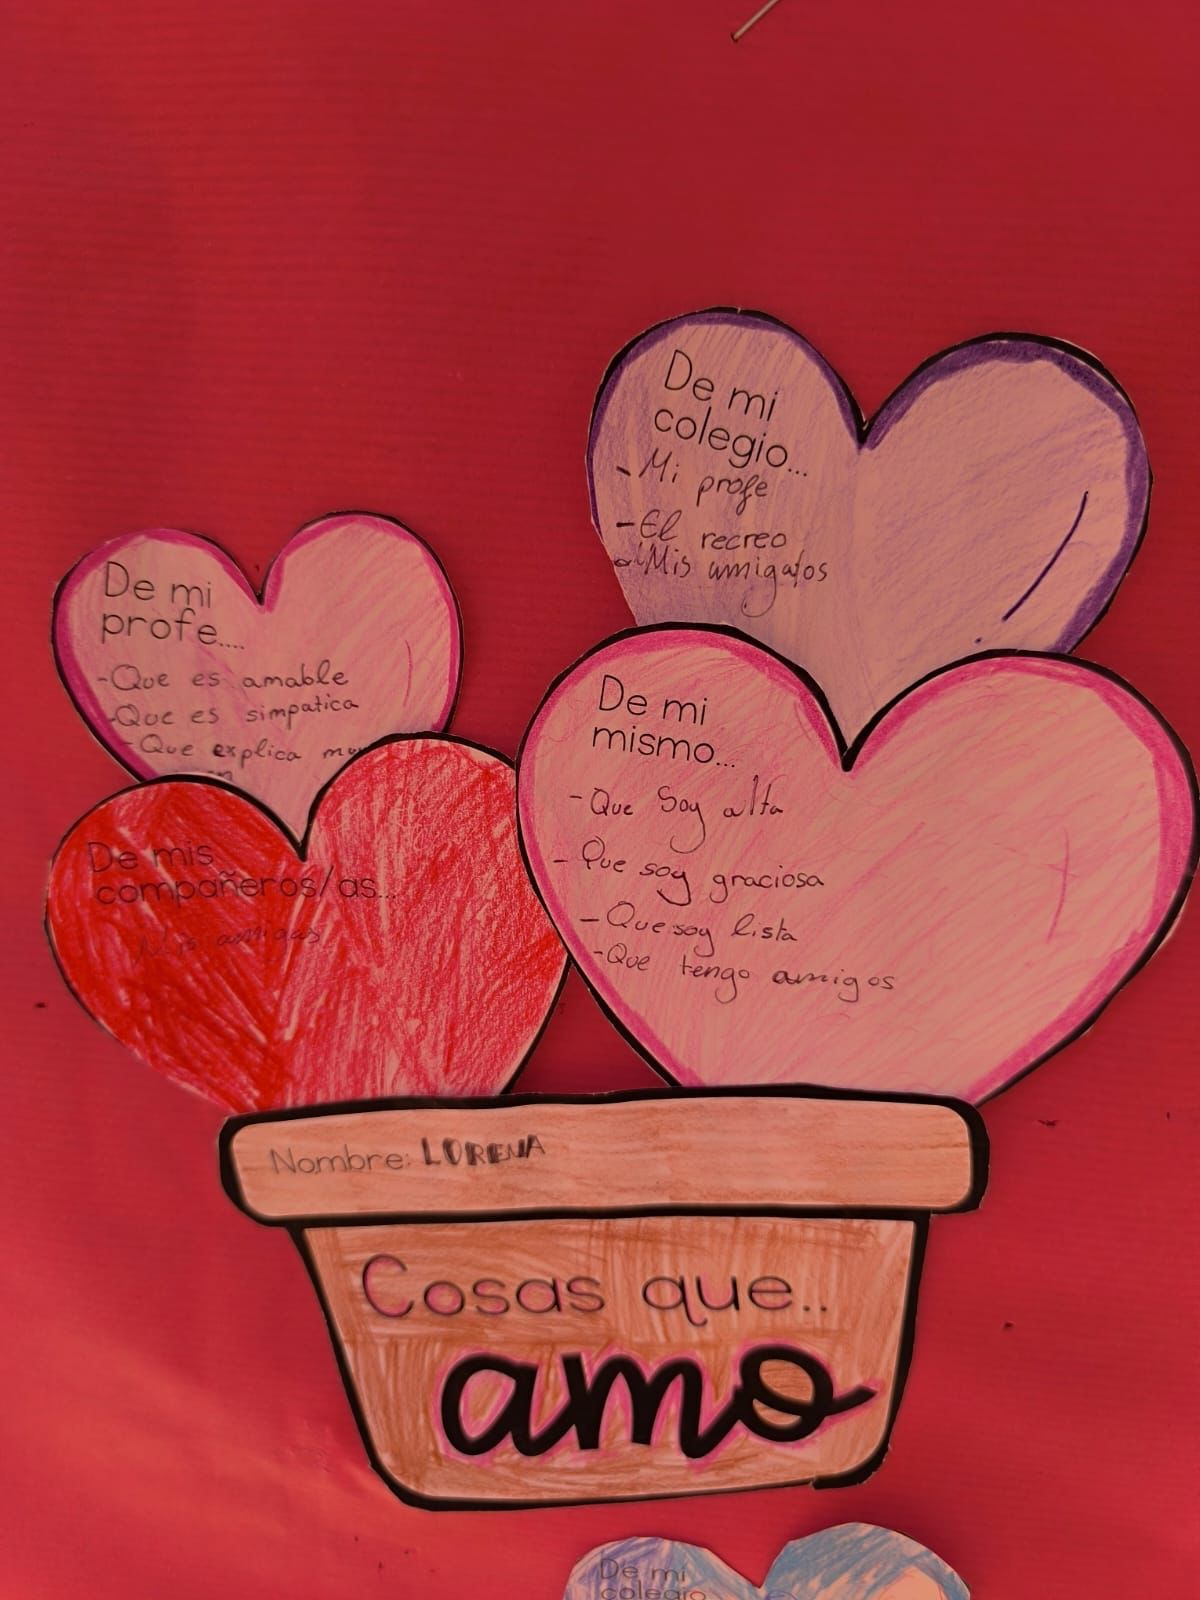 De mi
colegio...
- Mi profe
- El recreo
Mis amigos
De mi
profe....
- Que es amable
- Que es simpatica
- Que explica
De mi
mismo...
- Que Soy alta
- Que soy graciosa
- Que soy lista
- Que tengo amigos
De mis
compañeros/as...
Mis amigas
Nombre: LORENA
Cosas que..
amo
De mi
colegio